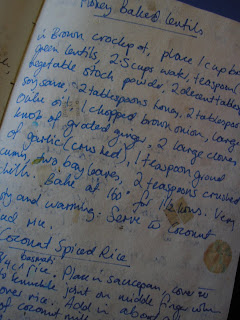 Honey baked lentils
in Brown crockpot, place 1 cup brown
green lentils, 2.5 cups water, teaspoon
vegetable stock powder, 2 dessert tables
soy sauce, 2 tablespoons honey, 2 tablespoo
Olive oil, 1 chopped brown onion, large
knob of grated ginger, 2 large cloves
of garlic (crushed), 1 teaspoon ground
cumin, two bay leaves, 2 teaspoons crushed
chilli. bake at 160° for 1½ hours. Very
and warming. Serve to coconut
rice.
Coconut Spiced Rice
basmati
rice. Place in saucepan, cover to
knuckle joint on middle finger when
over rice. Add in about
of coconut milk